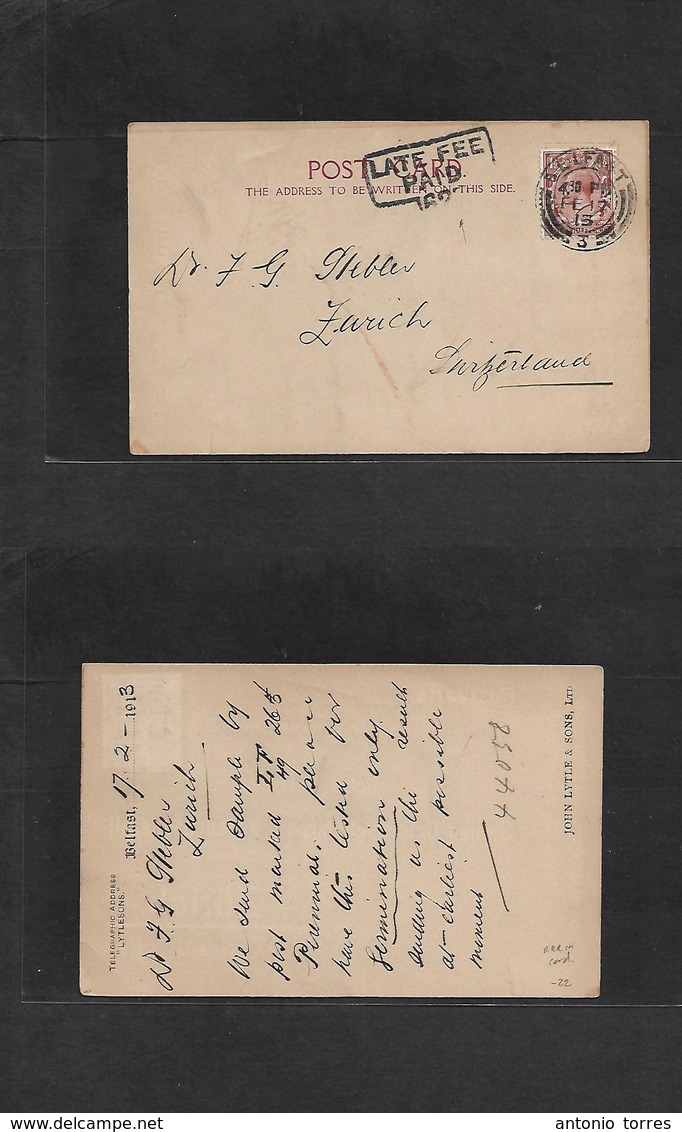 POST CARD.
THE ADDRESS TO BE WRITTEN ON THIS SIDE.
LATE FEE
PAID
BELFAST
4.30 PM
FE 17
13
3
Dr. F. G. Stebler
Zurich
Switzerland
TELEGRAPHIC ADDRESS
"LYTLESONS."
Belfast, 17-2-1913
Dr F. G Stebler
Zurich
We send sample by
post marked
Perennial, please
have this tested for
Germination only
sending us the result
at earliest possible
moment
44058
JOHN LYTLE & SONS, LTD
card.
-22
antonio torres